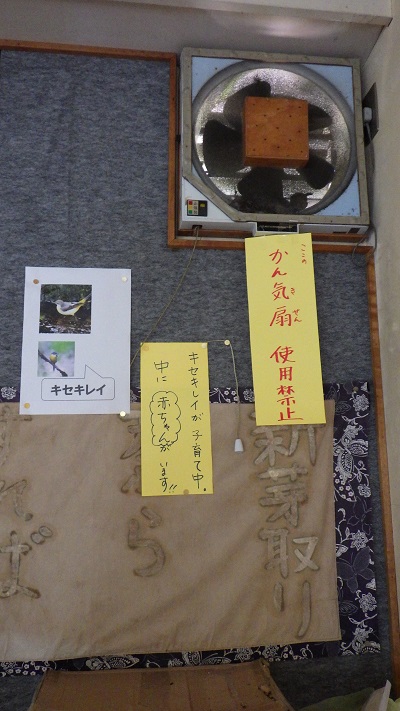 ここの
かん気扇 使用禁止
き
せん
キセキレイが子育て中。
中に赤ちゃんがいます!!
キセキレイ
新芽取り